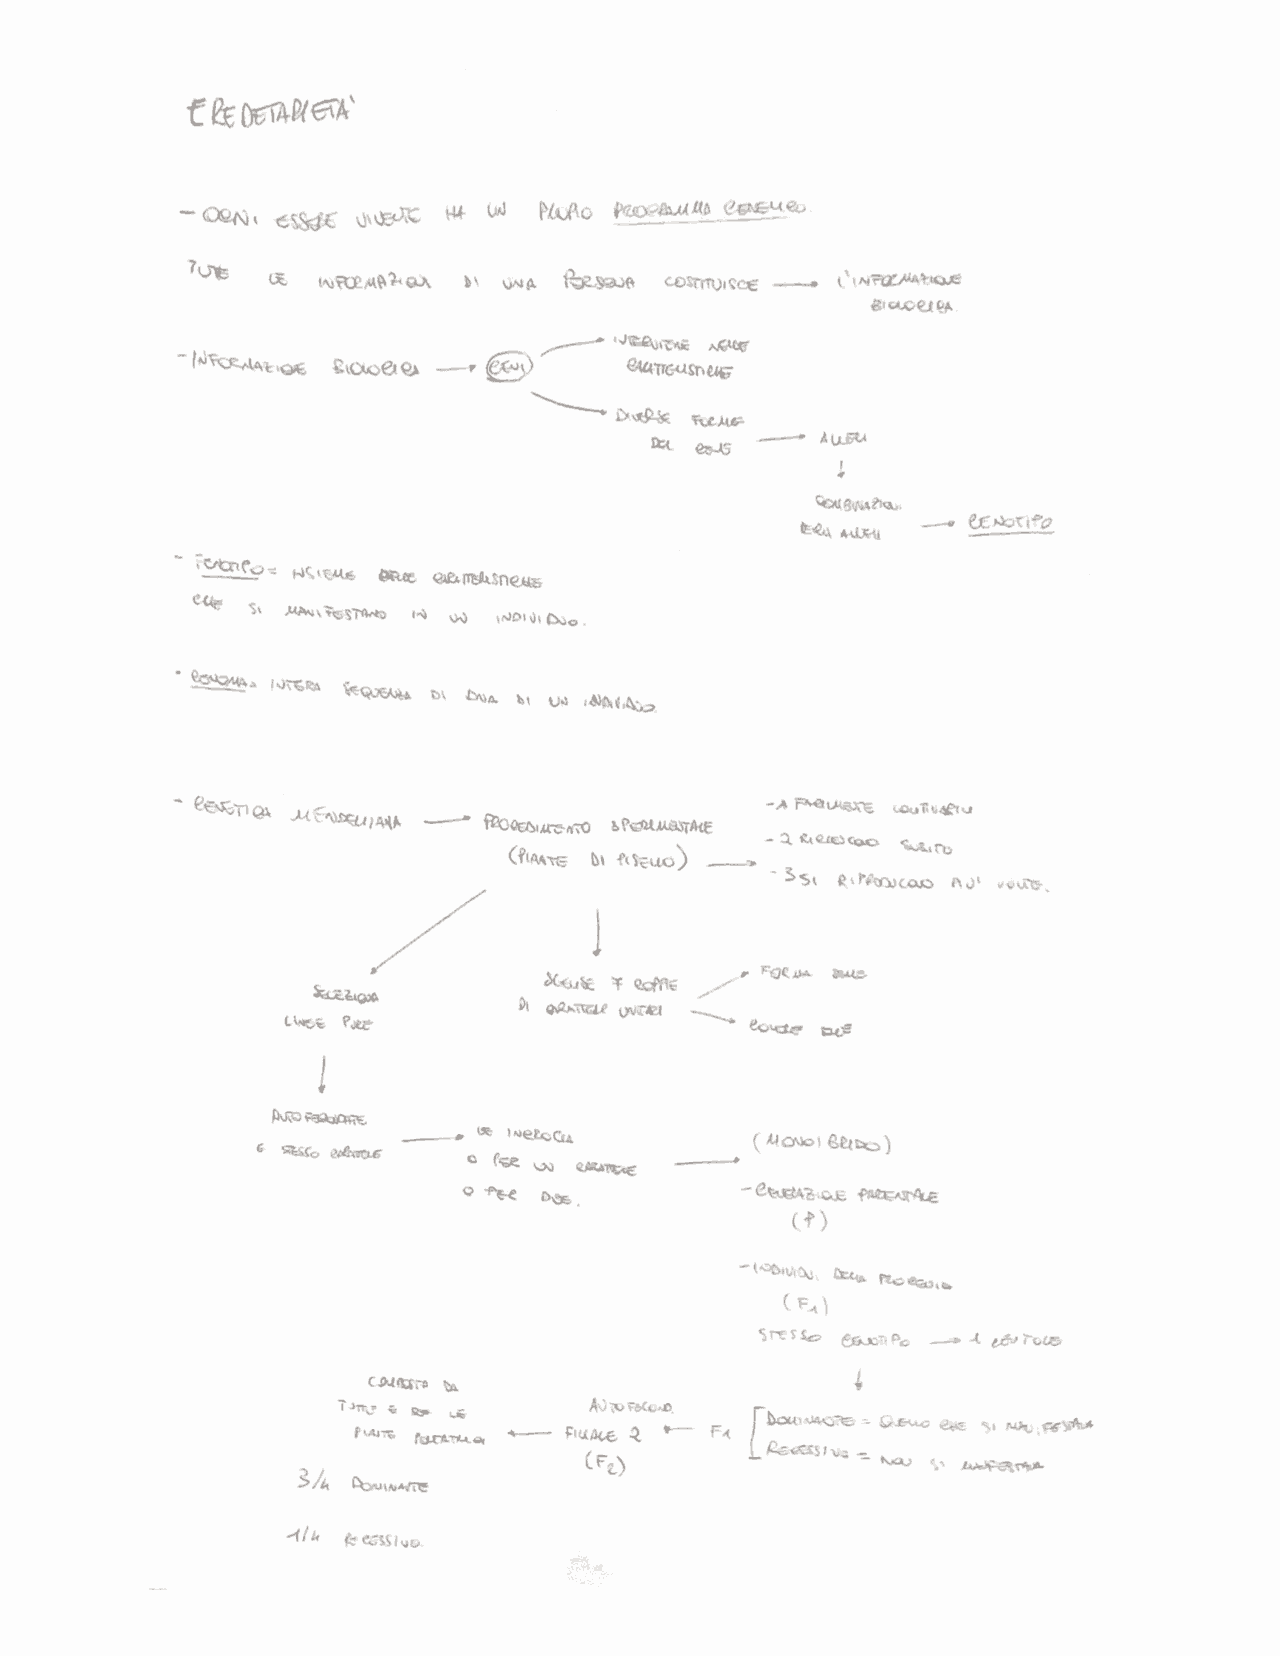 EREDETARIETÀ
- OGNI ESSERE VIVENTE HA UN PROPIO PROGRAMMA GENETICO.
TUTTE LE INFORMAZIONI DI UNA PERSONA COSTITUISCE → L'INFORMAZIONE
BIOLOGICA.
- INFORMAZIONE BIOLOGICA → GENI
NELLE
CARATTERISTICHE
DIVERSE FORME
DEL GENE → ALLELI
↓
COMBINAZIONI
ALLELI → GENOTIPO
- FENOTIPO = INSIEME DELLE CARATTERISTICHE
CHE SI MANIFESTANO IN UN INDIVIDUO.
- GENOMA = INTERA SEQUENZA DI DNA DI UN INDIVIDUO.
- GENETICA MENDELIANA → PROCEDIMENTO SPERIMENTALE
(PIANTE DI PISELLO) →
- 1 FACILMENTE COLTIVABILI
- 2 SUBITO
- 3 SI RIPRODUCONO PIU' VOLTE.
SELEZIONA
LINEE PURE
SCELSE 7 COPPIE
DI CARATTERI UNITARI
FORMA SEME
COLORE
↓
AUTOFECONDATE
E STESSO CARATTERE →
LE INCROCIA
O PER UN CARATTERE
O PER DUE. →
(MONOIBRIDO)
- GENERAZIONE PARENTALE
(P)
- INDIVIDUI DELLA PROGENIA
(F1)
STESSO GENOTIPO → 1 GENITORE
↓
DOMINANTE = QUELLO CHE SI MANIFESTAVA
RECESSIVO = NON SI MANIFESTAVA
F1
←
AUTOFECOND.
FILIALE 2
(F2)
←
COMPOSTA DA
TUTTE E LE
PIANTE
3/4 DOMINANTE
1/4 RECESSIVO.